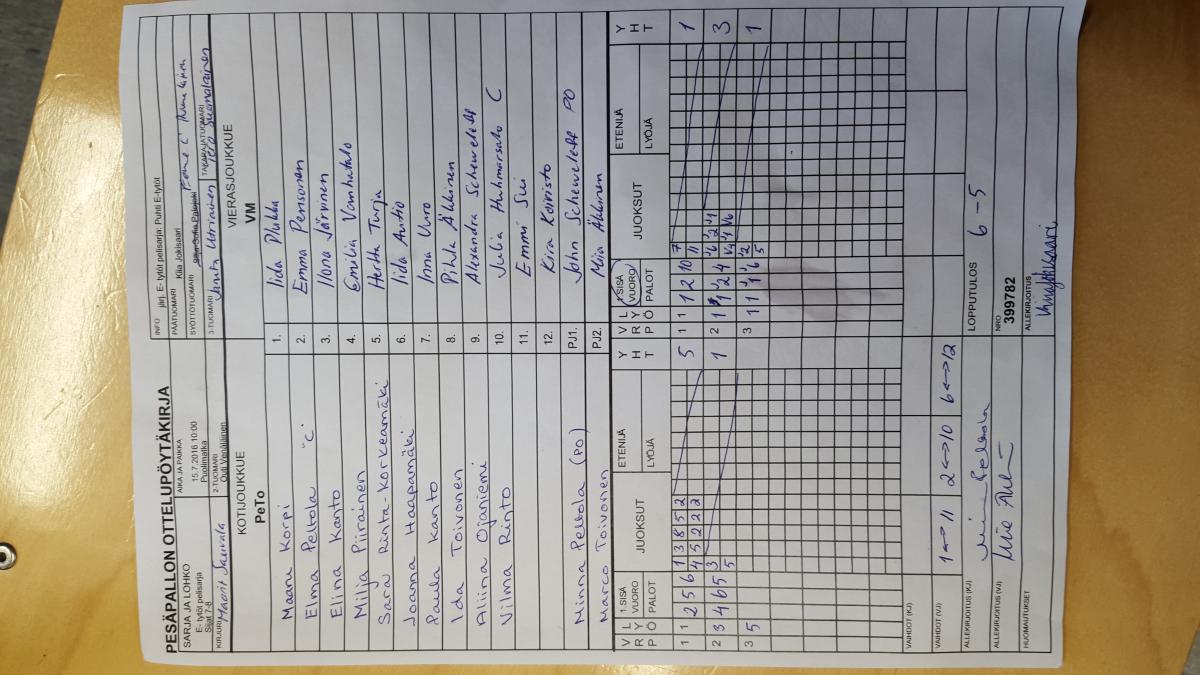 PESÄPALLON OTTELUPÖYTÄKIRJA
SARJA JA LOHKO
E- tytöt pelisarja
Sijat 7-8
AIKA JA PAIKKA
15.7.2016 10:00
Puolimatka
INFO järj. E- tytöt pelisarja: Puhti E-tytöt
PÄÄTUOMARI Kiia Jokisaari
SYÖTTÖTUOMARI
KIRJURI
2-TUOMARI
Outi Venäläinen
3-TUOMARI
TAKARAJATUOMARI
Tero Suomalainen
KOTIJOUKKUE
PeTo
VIERASJOUKKUE
VM
Maaru Korpi 1. Iida Pukka
Elma Peltola "C" 2. Emma Pensonen
Elina Kanto 3. Ilona Järvinen
Milja Piirainen 4. Emilia Vanhatalo
Sara Rinta-Korkeamäki 5. Hertta Turja
Joanna Haapamäki 6. Iida Autio
Paula Kanto 7. Inna Uuro
Ida Toivonen 8. Pihla Äkkinen
Aliina Ojaniemi 9. Alexandra Scheweleff
Vilma Rinto 10. Julia Huhmarsalo C
11. Emmi Sui
12. Kira Koivisto
Minna Peltola (PO) PJ1. John Scheweleff PO
Marco Toivonen PJ2. Miia Äkkinen
V R L Y P Ö 1.SISÄ VUORO PALOT JUOKSUT ETENIJÄ LYÖJÄ Y H T
V R L Y P Ö 1.SISÄ VUORO PALOT JUOKSUT ETENIJÄ LYÖJÄ Y H T
1 1 2 5 6 1 3 8 5 2 5
4 5 2 2 2
1 1 1 2 10 7 1
11
2 3 4 6 5 3 1
5
2 1 1 2 4 3
3 5
3 1 1 6 1
5
VAIHDOT (KJ)
VAIHDOT (VJ) 1↔11 2↔10 6↔12
ALLEKIRJOITUS (KJ)
LOPPUTULOS 6-5
ALLEKIRJOITUS (VJ)
NRO
399782
HUOMAUTUKSET
ALLEKIRJOITUS